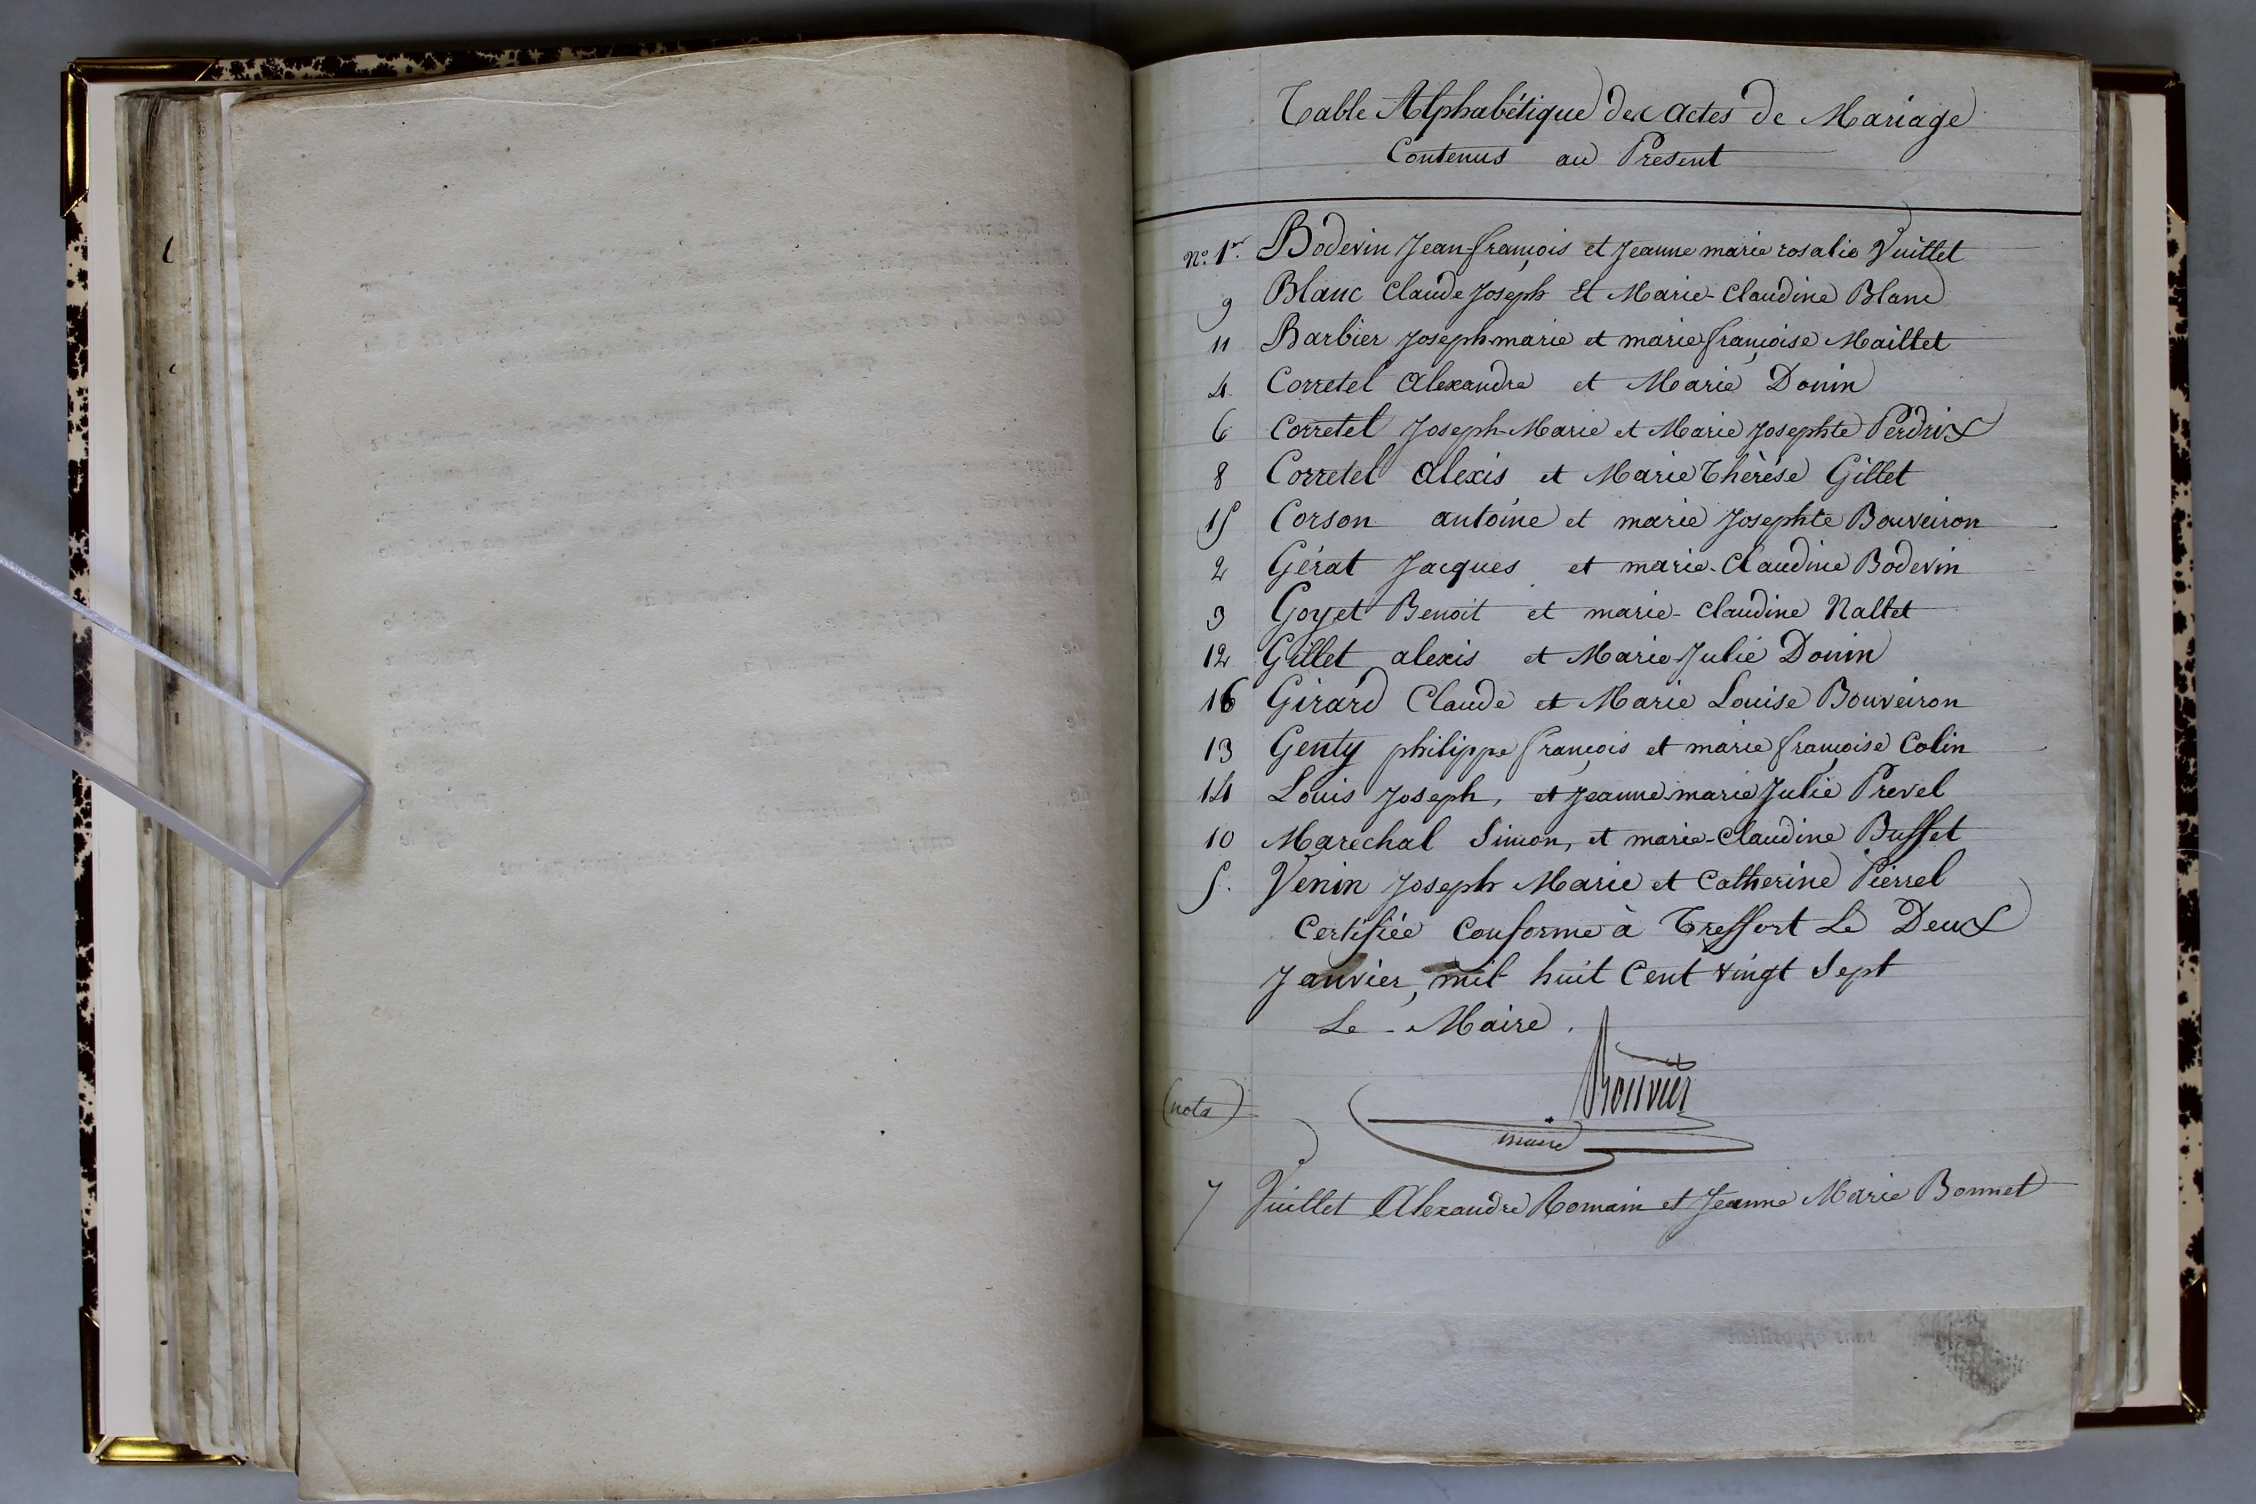 Table Alphabétique des actes de Mariage
Contenus au Présent
N.° 1.er Bodevin Jean-françois et Jeanne marie rosalie Vuillet
9 Blanc Claude Joseph Et Marie-Claudine Blanc
11 Barbier Joseph-marie et marie françoise Maillet
4 Corretel Alexandre et Marie Donin
6 Corretel Joseph-Marie et Marie Josephte Perdrix
8 Corretel Alexis et Marie Thérèse Gillet
15 Corson antoine et marie Josephte Bouveiron
2 Gérat Jacques et marie-Claudine Bodevin
3 Goyet Benoit et marie-Claudine Nallet
12 Gillet alexis et Marie Julie Donin
16 Girard Claude et Marie Louise Bouveiron
13 Genty philippe françois et marie françoise Colin
14 Louis Joseph, et Jeanne marie Julie Prevel
10 Marechal Simon, et marie-Claudine Buffet
5. Venin Joseph Marie et Catherine Pierrel
Certifiée Conforme à Treffort Le Deux
Janvier, mil huit Cent vingt Sept
Le - Maire.
Bouvier
(nota)
maire
7 Vuillet Alexandre Romain et Jeanne Marie Bonnet
sans opposition